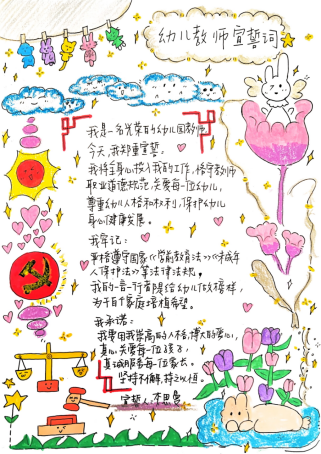 幼儿教师宣誓词
我是一名光荣的幼儿园教师,
今天,我郑重宣誓。
我将全身心投入我的工作,恪守教师
职业道德规范,关爱每一位幼儿,
尊重幼儿人格和权利,保护幼儿
身心健康发展。
我牢记:
严格遵守国家《学前教育法》《未成年
人保护法》等法律法规。
我的一言一行都能给幼儿做榜样,
为千百个家庭播植希望。
我承诺:
我要用我崇高的人格,博大的爱心,
真心关爱每一位孩子,
真诚服务每一位家长。
坚持不懈,持之以恒。
宣誓人:李思